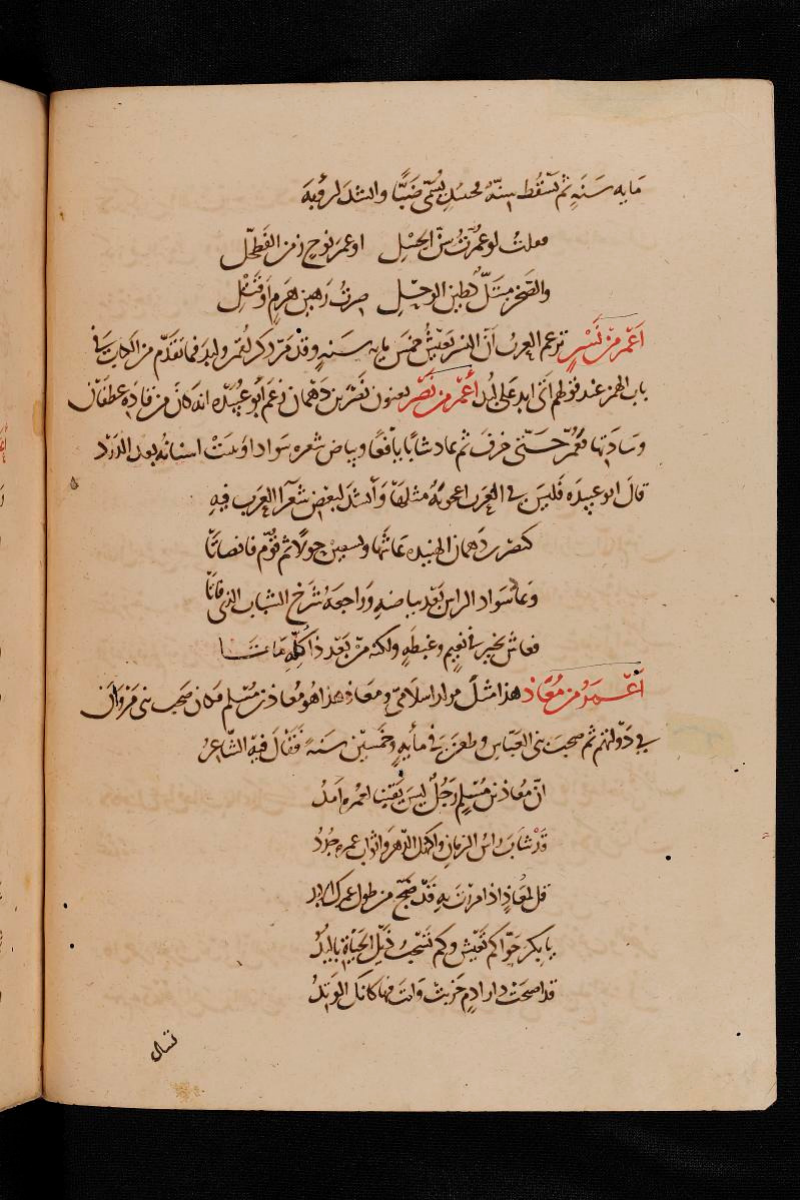 مايه سَنَةٍ ثم تسقُط سِنّهُ فحينئذٍ يُسَمّى ضَبًّا وانشدَ لرؤبة
فعلتُ لو عُمّرتُ سِنّ الحِسْل او عمرَ نوحٍ زمن الفَطَحْل
والصَخر مُبتَلٌّ كطين الوحل صِرتُ رَهينَ هَرَمٍ او قَتْل
اَعْمر مِن نَسْرٍ تزعم العربُ اَنّ النسر يَعيشُ خمسَ مايه سَنهٍ وقد مَرّ ذكر لُقمن ولبد فيما تقدّم من الكتاب في
باب الهمز عند قولهم اتى ابد على لُبد أعْمَر من نَصْرٍ يعنون نَصْر بن دَهْمان زعم أبو عُبيدَه انه كانَ من قادة غطفان
وسادَتِها فعُمّر حَتّى خرفَ ثم عاد شابًّا يافعًا وبياض شعره سَوادا ونبتَتْ اسنانه بعد الدَرَد
قالَ ابو عبيدَه فليسَ في العَرَب اعجوبَةٌ مثلهَا وَأنشدَ لبَعْضِ شعَرآ العَرَب فيهِ
كنصر بن دَهمان الهنيده عَاشَها وتسعين حولاً ثم قُوّم فانصاتا
وعَادَ سوادُ الراس بَعْد بياضهِ وَراجعَهُ شَرْخ الشباب الذي فاتا
فعاش بخير في نعيمٍ وغبطةٍ ولكنه مِن بَعْدِ ذا كُلّهِ مَاتَــا
اَعْــمَرُ مِن مُعَاذ هذا مثلٌ مولد اسلاميّ ومعَاذ هذا هو مُعاذ بن مُسْلم وكان صحب بني مروان
في دَوْلتهم ثم صحبَ بني العبّاس وطعن في مأيهٍ وخَمْسين سَنةً فَقَال فيهِ الشّاعرُ
انّ معُاذ بن مُسْلم رَجُلٌ ليسَ يَقينًا لعُمْره اَمَدُ
قَدْ شابَ راسُ الزمانِ واكتهل الدّهر واثواب عمره جُدُدُ
قل لمُعاذٍ اذا مررْتَ بهِ قَدْ ضَجّ من طول عمرك الابد
يا بِكر حَوّا كم تَعيش وكم تَسْحَبُ ذَيْل الحياة يا لُبَدُ
قد اصبحَتْ دار ادمٍ خَربتْ وَانتَ فيها كانك الوَتدُ
تسال